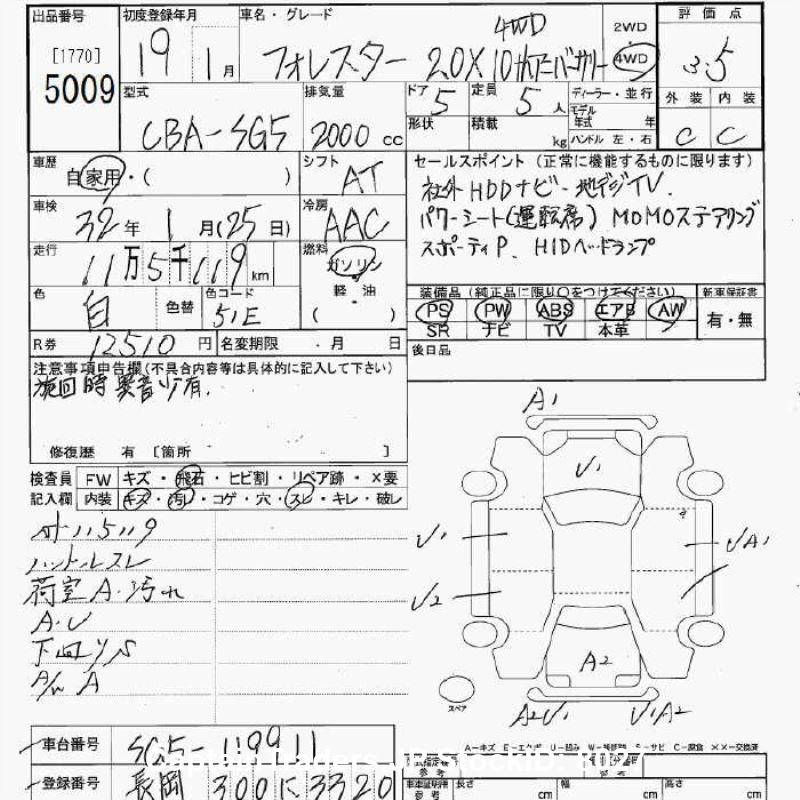 出品番号 初度登録年月 車名・グレード 4WD 2WD 評価点
[1770] 19 1月 フォレスター 2.0X 10thアニバーサリー 4WD 3.5
5009 型式 排気量 ドア 5 定員 5人 ディーラー・並行 外装 内装
CBA-SG5 2000cc 形状 積載 kg モデル年式 年 C C
ハンドル 左・右
車歴 自家用・( ) シフト AT セールスポイント (正常に機能するものに限ります)
車検 32年 1月(25日) 冷房 AAC 社外HDDナビ・地デジTV.
パワーシート(運転席) MOMOステアリング
走行 11万5千119km 燃料 ガソリン スポーティP. HIDヘッドランプ
軽・油
( )
色 白 色替 色コード 51E 装備品 (純正品に限り○をつけてください) 新車保証書
PS PW ABS エアB AW 有・無
SR ナビ TV 本革
R券 12510円 名変期限 ・月 日 後日品
注意事項申告欄(不具合内容等は具体的に記入して下さい)
旋回時異音少有.
修復歴 有 [箇所 ]
検査員 FW キズ・飛石・ヒビ割・リペア跡・×要
記入欄 内装 キズ・汚レ・コゲ・穴・スレ・キレ・破レ
A1
U1
U1 UA1
U2
A2
A2U1 U1A2
スペア
メ115119
ハンドルスレ
荷室A・汚れ
A・U
下回りS
A/W A
A-キズ E-エクボ U-凹み W-補修跡 S-サビ C-腐食 ××-交換済
車台番号 SG5-119911
Captain Traders JP StockID: 8027
登録番号 長岡 300に3320
参考 長さ cm 幅 cm 高さ cm